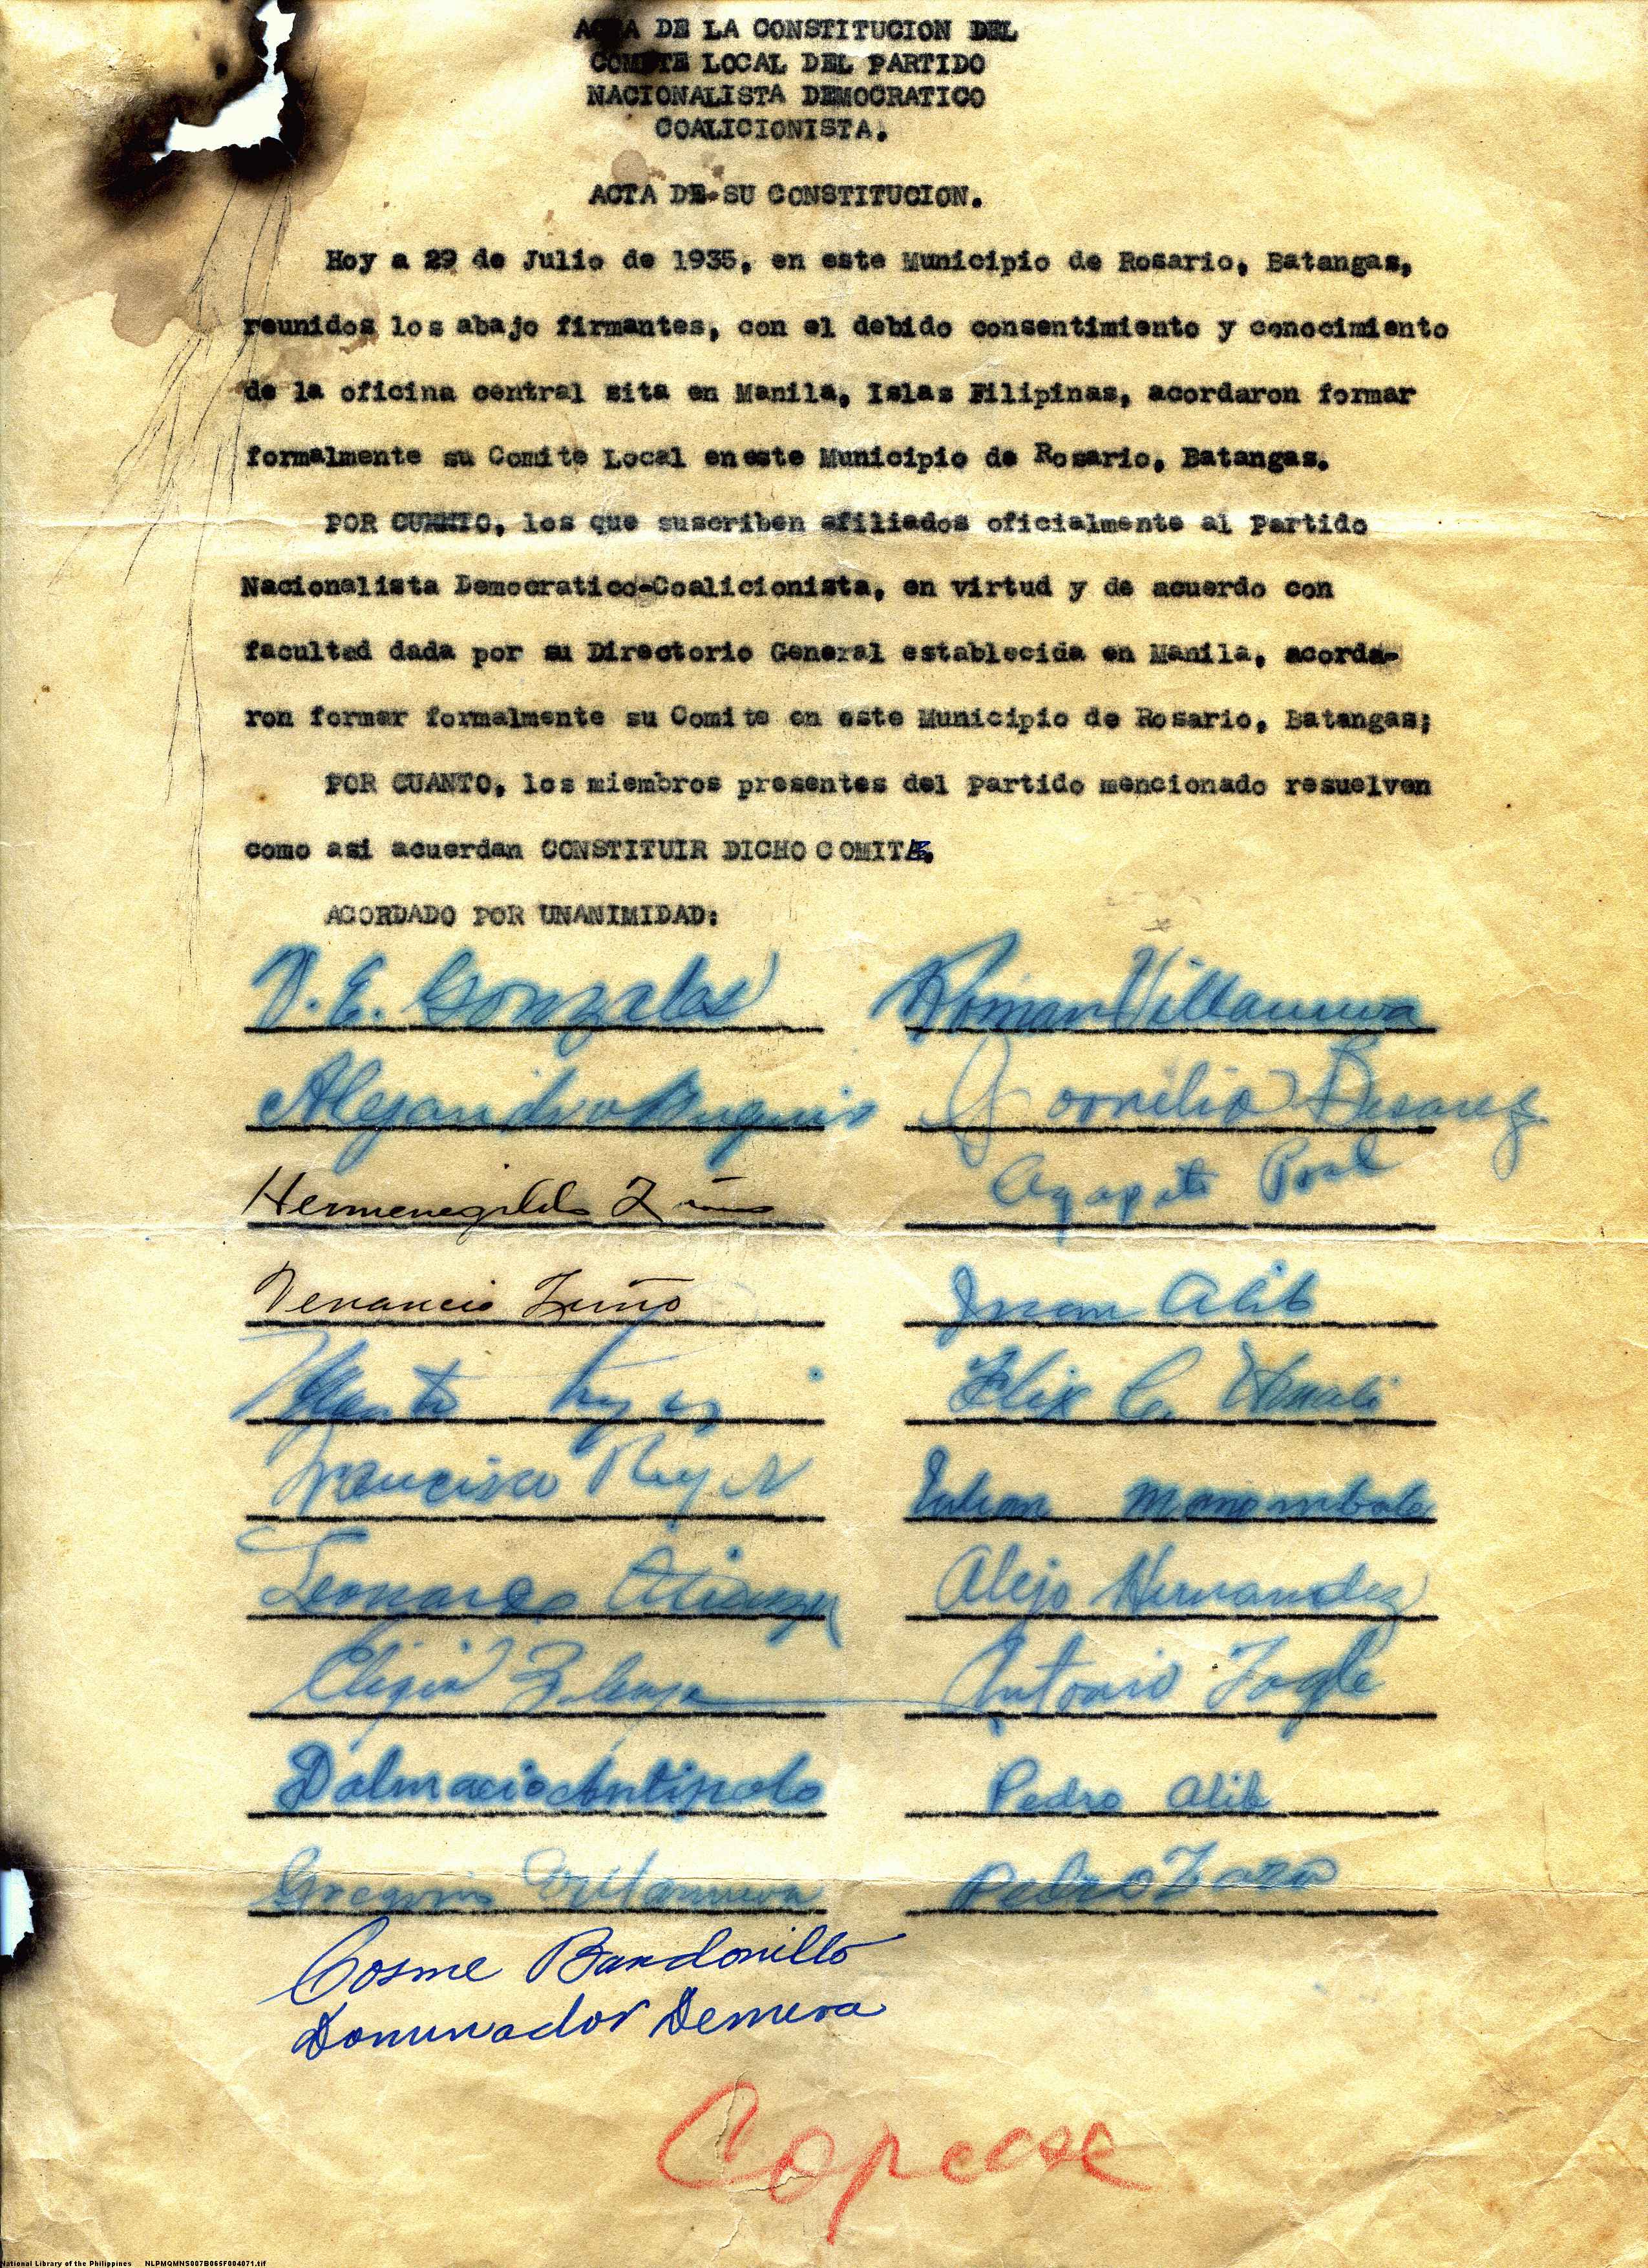 ACTA DE LA CONSTITUCION DEL
COMITE LOCAL DEL PARTIDO
NACIONALISTA DEMOCRATICO
COALICIONISTA.
ACTA DE SU CONSTITUCION.
Hoy a 29 de Julio de 1935, en este Municipio de Rosario, Batangas,
reunidos los abajo firmantes, con el debido consentimiento y conocimiento
de la oficina central sita en Manila, Islas Filipinas, acordaron formar
formalmente su Comite Local en este Municipio de Rosario, Batangas.
POR CUANTO, los que suscriben afiliados oficialmente al Partido
Nacionalista Democratico-Coalicionista, en virtud y de acuerdo con
facultad dada por su Directorio General establecida en Manila, acorda-
ron formar formalmente su Comite en este Municipio de Rosario, Batangas;
POR CUANTO, los miembros presentes del Partido mencionado resuelven
como asi acuerdan CONSTITUIR DICHO COMITE.
ACORDADO POR UNANIMIDAD:
V. E. Gonzales
Roman Villanueva
Alejandro
Cornelio
Hermenegildo Zuño
Agapito
Venancio Zuño
Juan Alib
Reyes
Felix C.
Francisco Reyes
Julian
Leonardo Atienza
Alejo Hernandez
Eligio
Antonio Tagle
Dalmacio Antipolo
Pedro Alib
Gregorio Villanueva
Pedro
Cosme Bandonillo
Dominador
Copiese
National Library of the Philippines NLPMQMNS007B065F004071.tif